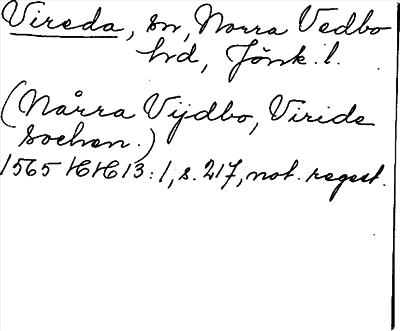 Vireda, sn, Norra Vedbo
hd, Jönk. l.
(Nårra Vijdbo, Viride
sochen.)
1565 HH 13:1, s. 217, not. regest.